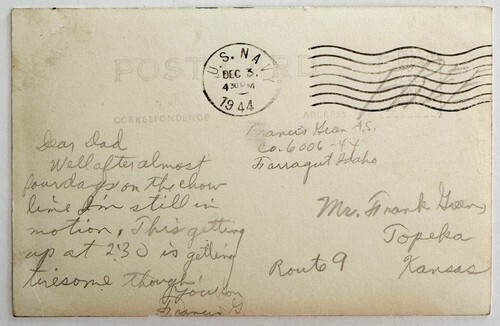 POST CARD
U.S. NAVY
DEC 3
4 30 PM
1944
CORRESPONDENCE
ADDRESS
Francis Gean A.S.
Co. 6006-44
Farragut Idaho
Dear Dad
Well after almost
four days on the chow
line I'm still in
motion. This getting
up at 2:30 is getting
tiresome though.
Your son
Francis G
Mr. Frank Gean
Topeka
Route 9 Kansas